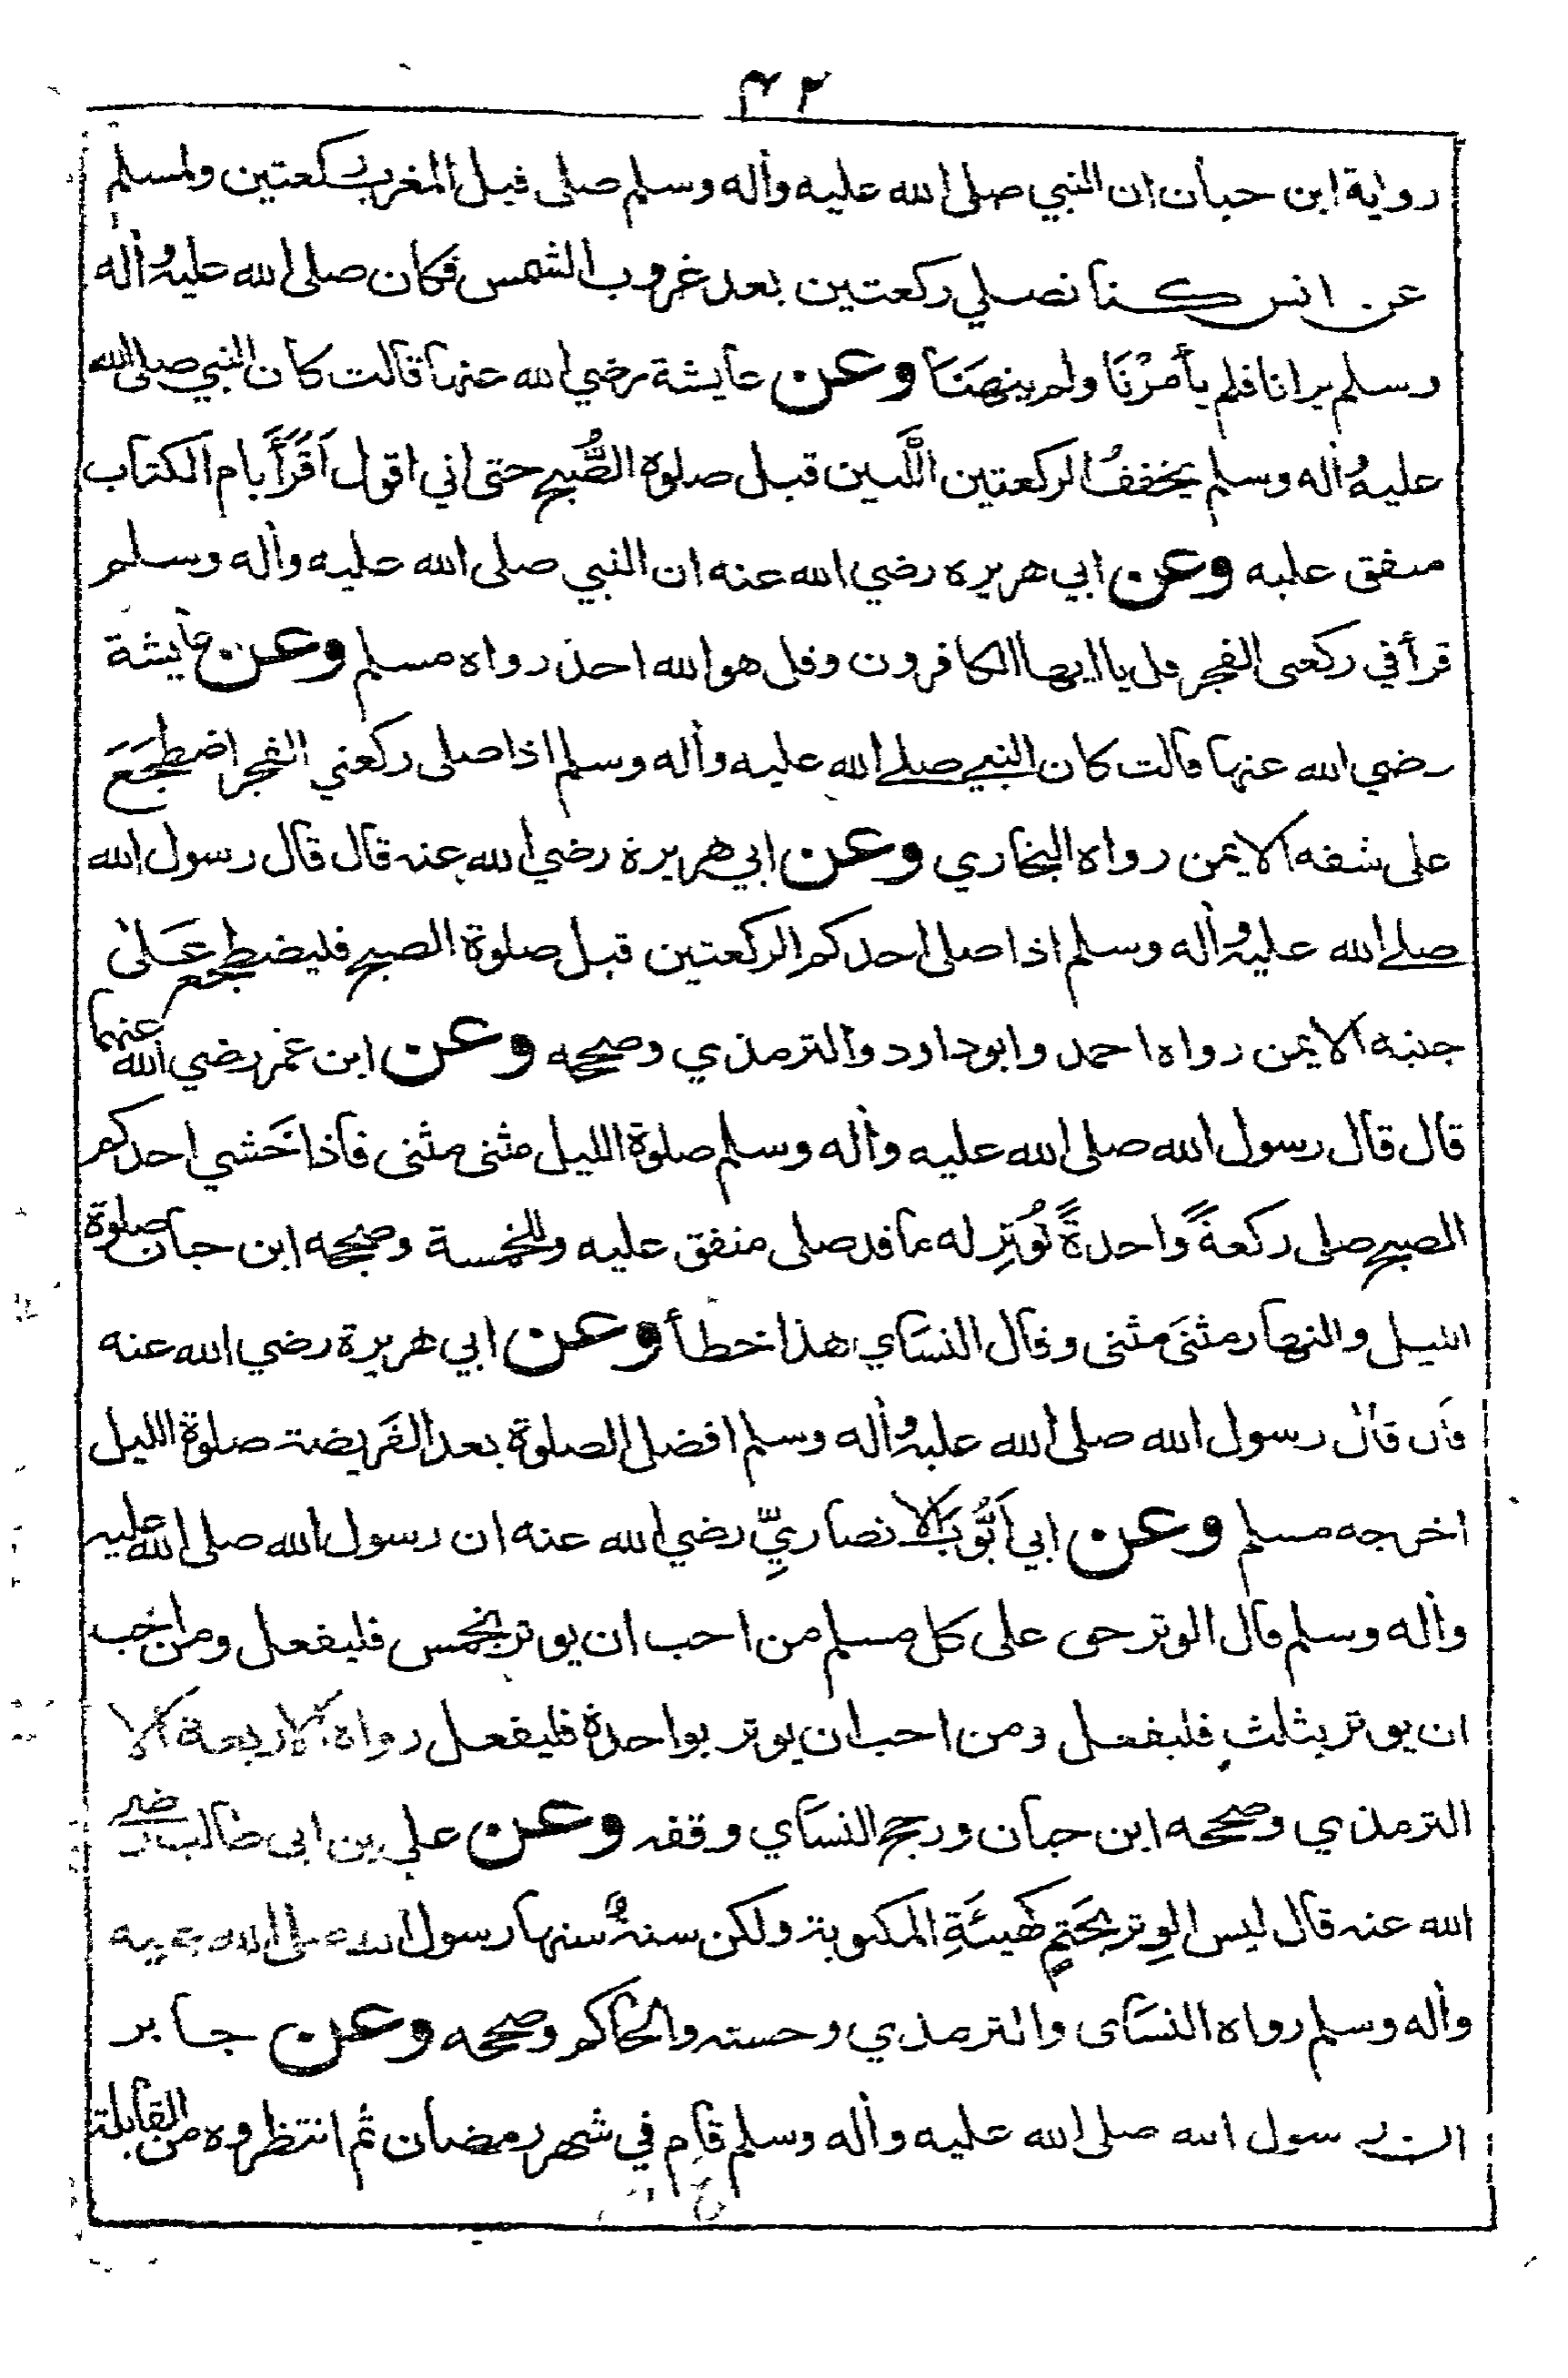 ٤٢
رواية ابن حبان ان النبي صلى الله عليه وأله وسلم صلى قبل المغرب ركعتين ولمسلم
عن انس كنا نصلي ركعتين بعد غروب الشمس فكان صلى الله عليه وأله
وسلم يرانا فلم يأمُرْنَا ولم ينهَنَا وعن عايشة رضي الله عنها قالت كان النبي صلى الله
عليه وأله وسلم يخففُ الركعتين اللَّتين قبل صلوة الصُّبح حتى اني اقول اَقَرَأَ بام الكتاب
متفق عليه وعن ابي هريره رضي الله عنه ان النبي صلى الله عليه وأله وسلم
قرأ في ركعتى الفجر قل يا ايها الكافرون وقل هو الله احد رواه مسلم وعن عايشة
رضي الله عنها قالت كان النبي صلے الله عليه وأله وسلم اذا صلى ركعتي الفجر اضطجَعَ
على شقه الايمن رواه البخاري وعن ابي هريرة رضي الله عنه قال قال رسول الله
صلے الله عليه وأله وسلم اذا صلى احدكم الركعتين قبل صلوة الصبح فليضطجع عَلىٰ
جنبه الايمن رواه احمد وابوداود والترمذي وصححه وعن ابن عمر رضي الله عنهما
قال قال رسول الله صلى الله عليه وأله وسلم صلوة الليل مثنى مثنى فاذا خَشي احدكم
الصبح صلى ركعةً واحدةً تُوتِر له ما قد صلى متفق عليه وللخمسة وصححه ابن حبان صلوة
الليل والنهار مثنَى مثنى وقال النسَاي هذا خطأ وعن ابي هريرة رضي الله عنه
قال قال رسول الله صلى الله عليه وأله وسلم افضل الصلوة بعد الفَريضة صلوة الليل
اخرجه مسلم وعن ابي اَيُّوبَ الانصاريِّ رضي الله عنه ان رسول الله صلى الله عليه
وأله وسلم قال الوتر حق على كل مسلم من احب ان يوتر بخمس فليفعل ومن احب
ان يوتر بثلث فليفعل ومن احب ان يوتر بواحدة فليفعل رواه الاربعة الا
الترمذي وصححه ابن حبان ورجح النسَاي وقفه وعن علي بن ابى طالب رضے
الله عنه قال ليس الوِتر بحَتمٍ كهَيئَةِ المكتوبة ولكن سنةٌ سنها رسول الله صلى الله عليه
وأله وسلم رواه النسَاى والترمذي وحسنه والحاكم وصححه وعن جابر
ان رسول الله صلى الله عليه وأله وسلم قام في شهر رمضان ثم انتظروه من القابلة